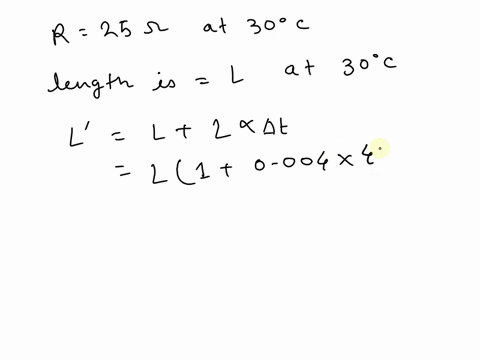 R = 25 Ω at 30°C
length is = L at 30°C
L' = L + L ∝ Δt
= L ( 1 + 0.004 × 4